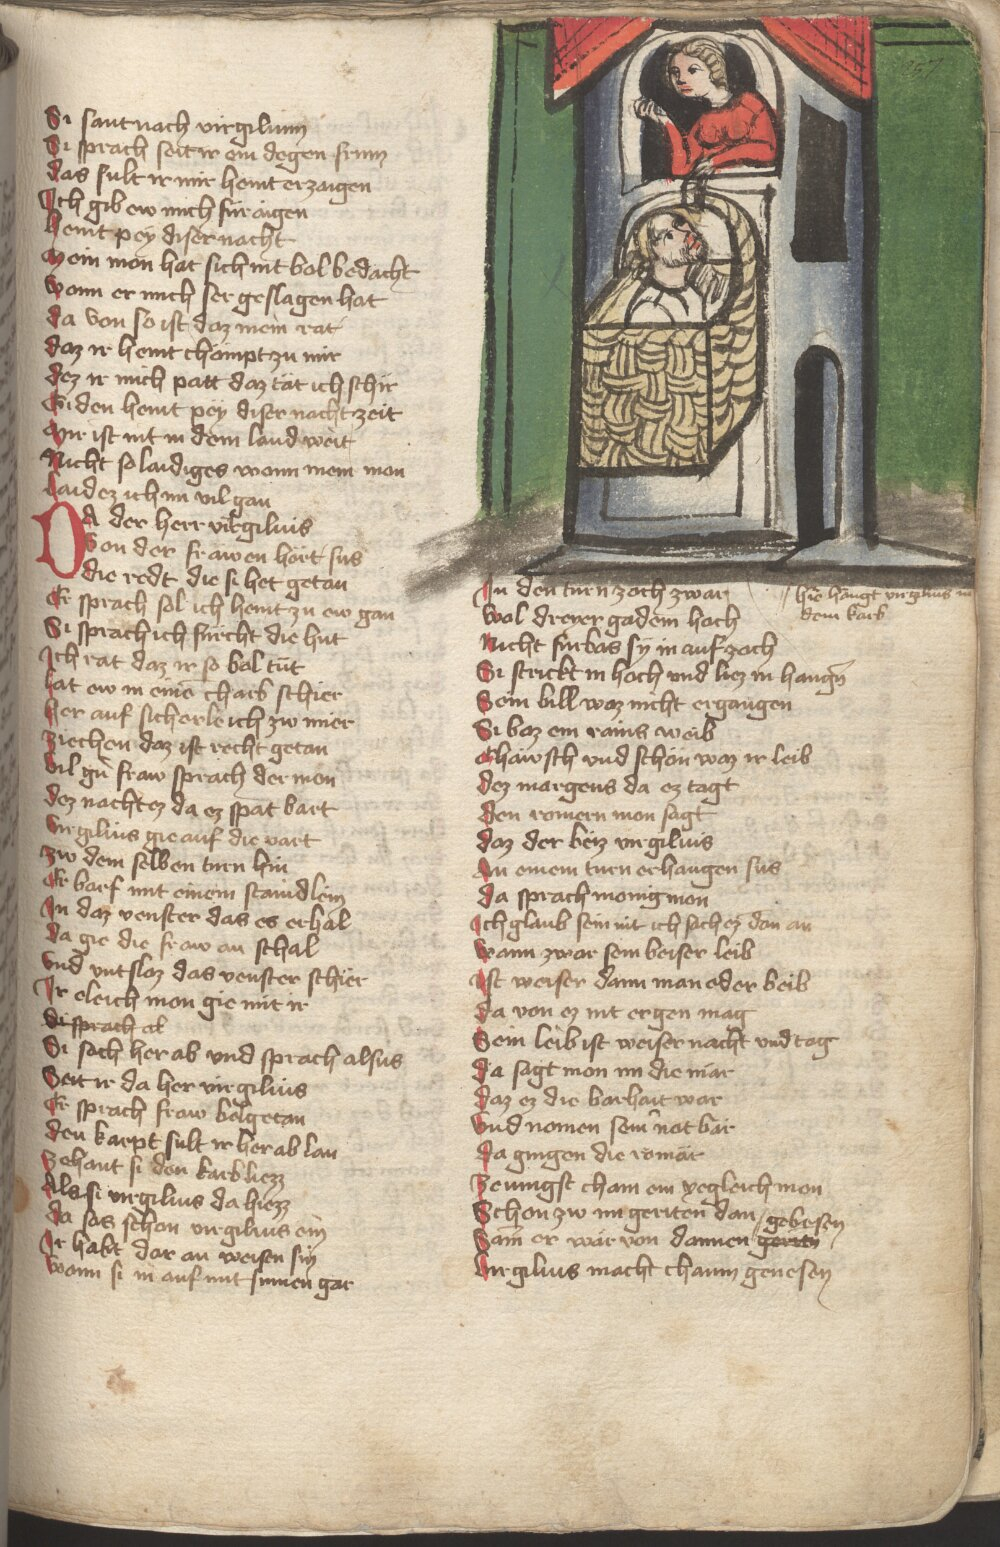 257
Si sant nach virgilium
Si sprach seit ir ein degen frum
das sult ir mir heint erzaigen
Ich gib ew mich für aigen
heint pey diser nacht
Mein mon hat sich nit bol bedacht
wann er mich ser geslagen hat
da von so ist daz mein rat
daz ir heint chömpt zu mir
dez ir mich patt daz tät ich schir
Siden heint pey diser nacht zeit
Mir ist nit in dem land weit
Nicht so laidiges wann mein mon
laidez ich im vil gan
DA der herr virgilius
Von der frawen hört sus
die redt die si het getan
Er sprach sol ich heint zu ew gan
Si sprach ich fürcht die hut
Ich rat daz ir so bol tüt
lat ew in eine charb schier
her auf sicherleich zw mier
Ziechen daz ist recht getan
vil gu fraw sprach der mon
dez nachtez da ez spät bart
virgilius gie auf die vart
zw dem selben turn hin
Er barf mit einem staindlein
In daz venster das es erhal
da gie die fraw an schal
vnd vntsloz das venster schier
Ir eleich mon gie mit ir
Si sprach al
Si sach her ab vnd sprach alsus
Seit ir da her virgilius
Er sprach fraw bolgetan
den karpt sult ir her ab lan
Zehant si den karb liezz
Als si virgilius da hiezz
da sas schon virgilius ein
Ir habt dar an weisen sin
wann si in auf mit sinnen gar
In den turn zoch zwar
wol dreyer gadem hoch
Nicht fürbas sy in auf zoch
Si strickt in hoch vnd liez in hangn
Sein bill waz nicht ergangen
Si boz ein rains weib
Chäwsch vnd schön waz ir leib
dez margens da ez tagt
den romern mon sagt
daz der beiz virgilius
An einem turn erhangen sus
da sprach monig mon
Ich glaub sein nit ich sach ez dan an
wann zwar sein beiser leib
Ist weiser dann man oder beib
da von ez nit ergen mag
Sein leib ist weiser nacht vnd tag
da sagt mon im die mär
daz ez die barhait war
vnd nomen sein not bär
da gingen die romär
Zeuingst cham ein yegleich mon
Schon zw im geriten dan
Sam er wär von dannen gebesen
virgilius macht chaum genesen
hie hangt virgilius in
dem karb